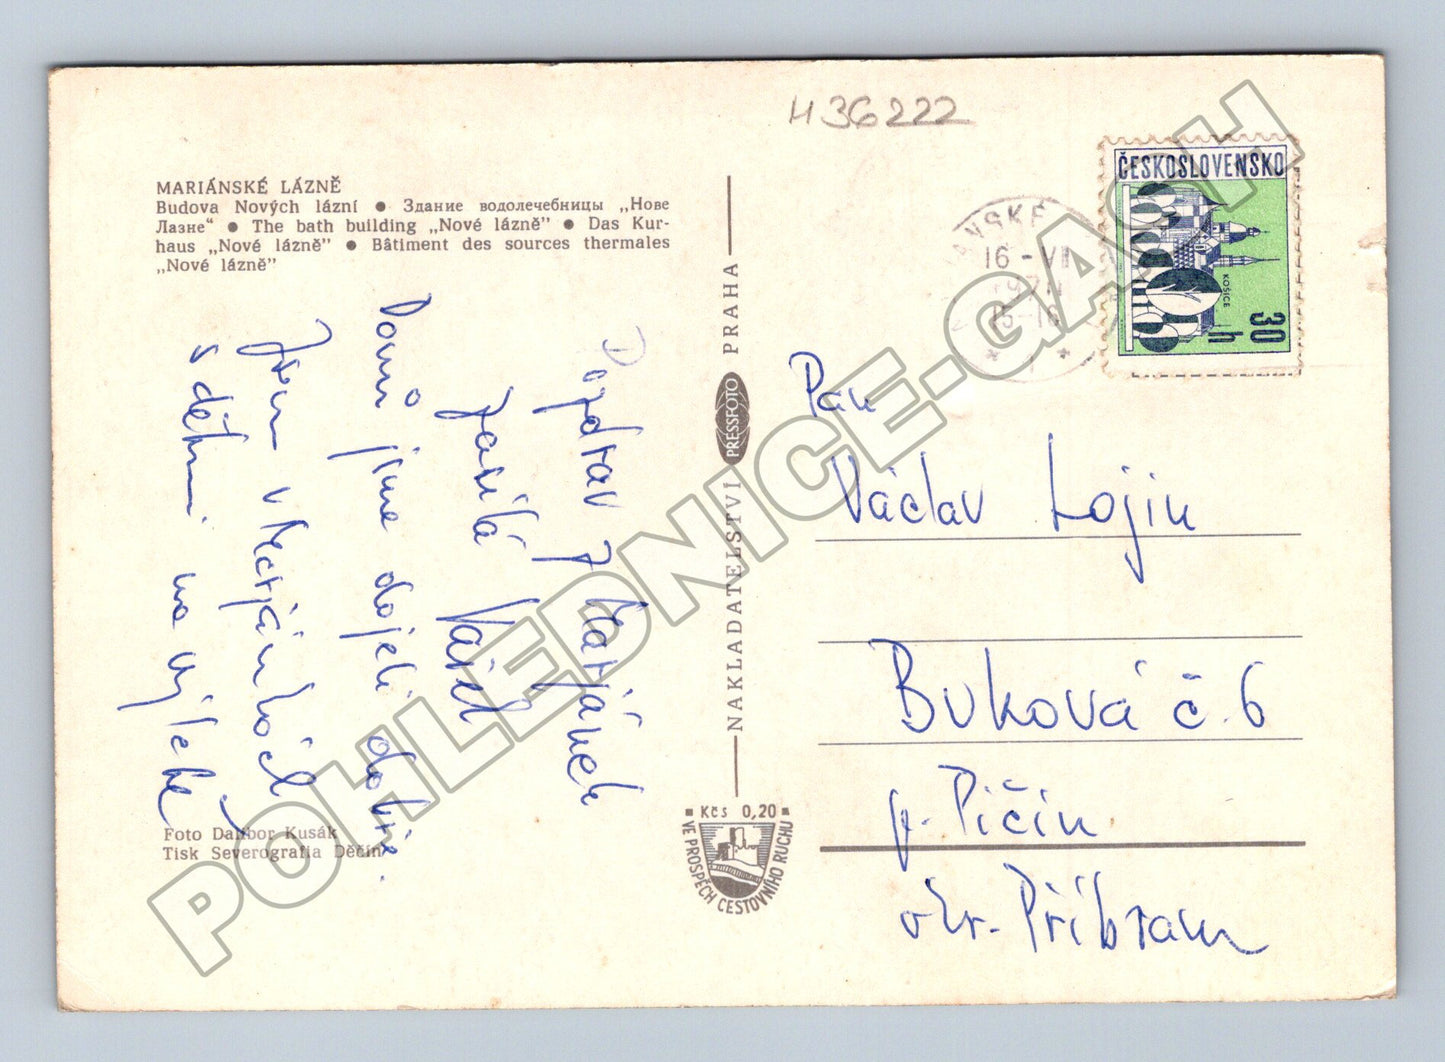 H36222
MARIÁNSKÉ LÁZNĚ
Budova Nových lázní ● Здание водолечебницы „Нове
Лазне“ ● The bath building „Nové lázně” ● Das Kur-
haus „Nové lázně” ● Bâtiment des sources thermales
„Nové lázně”
Pozdrav z Marjánek
zasílá Vašek
Domů jsme dojeli dobře.
Jsem v Marjánkách
s dětmi na výletě
Foto Dalibor Kusák
Tisk Severografia Děčín
NAKLADATELSTVÍ PRESSFOTO PRAHA
Kčs 0,20
VE PROSPĚCH CESTOVNÍHO RUCHU
ČESKOSLOVENSKO
KOŠICE
30 h
ÁNSKÉ
16-VI
15-16
Pan
Václav Lojin
Buková č. 6
p. Pičín
okr. Příbram
POHLEDNICE-GASH